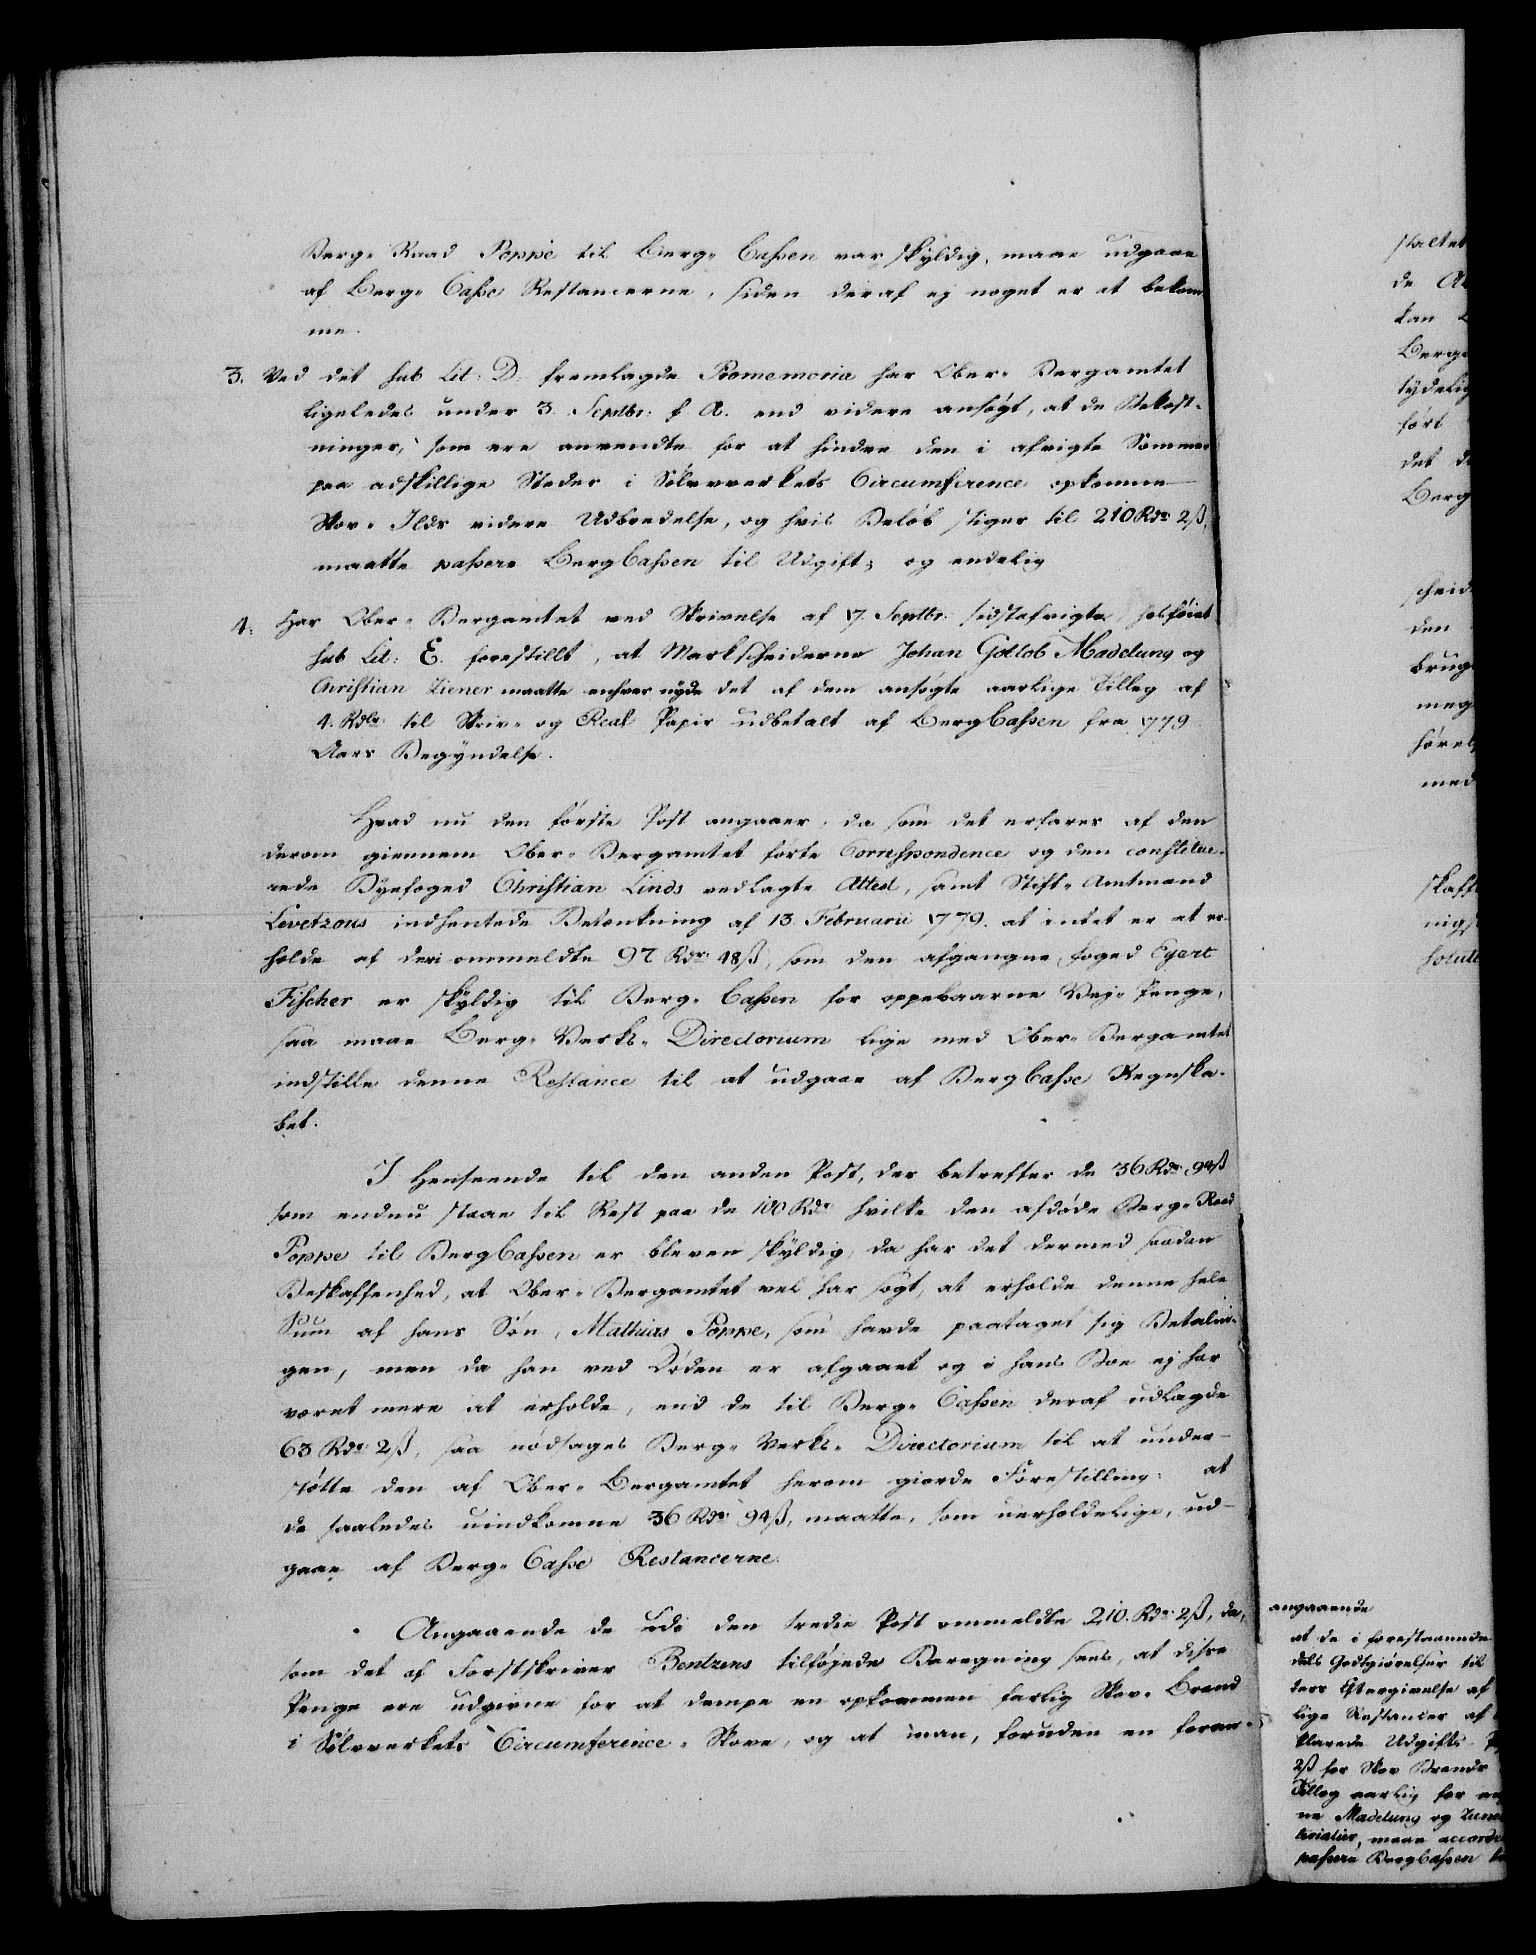 Berg- Raad Poppe til Berg- Cassen var skyldig, maae udgaae
af Berg- Casse Restancerne, siden deraf ej noget er at bekom
me.
3. Ved det sub Lit: D. fremlagde Promemoria har Ober- Bergamtet
ligeledes under 3. Septbr: f. A. end videre ansøgt, at de Bekost-
ninger, som ere anvendte for at hindre den i afvigte Sommer
paa adskillige Steder i Sølvverkets Circumference opkomne
Skov- Ilds videre Udbredelse, og hvis Beløb stiger til 210 Rdr 2 ß,
maatte passere BergCassen til Udgift; og endelig
4. Har Ober- Bergamtet ved Skrivelse af 17. Septbr: sidstafvigte, hosføiet
sub Lit: E. forestillt, at Markscheiderne Johan Gotlob Madelung og
Christian Ziener maatte enhver nyde det af dem ansøgte aarlige Tilleg af
4. Rdlr. til Skriv- og Real Papir udbetalt af BergCassen fra 1779
Aars Begyndelse.
Hvad nu den første Post angaaer, da som det erfares af den
derom giennem Ober- Bergamtet førte Correspondence og den constitue-
rede Byefoged Christian Linds vedlagte Attest, samt Stift- Amtmand
Levetzous indhentede Betænkning af 13. Februarii 1779. at intet er at er-
holde af deri ommeldte 97 Rdr: 48 ß, som den afgangne Foged Egert
Fischer er skyldig til Berg- Cassen for oppebaarne Vej- Penge,
saa maae Berg- Verks- Directorium lige med Ober- Bergamtet
indstille denne Restance til at udgaae af BergCasse Regnska-
bet.
I Henseende til den anden Post, der betreffer de 36 Rdr 94 ß
som endnu staae til Rest paa de 100 Rdr hvilke den afdøde Berg- Raad
Poppe til BergCassen er bleven skyldig, da har det dermed saadan
Beskaffenhed, at Ober- Bergamtet vel har søgt, at erholde denne hele
Sum af hans Søn, Mathias Poppe, som havde paataget sig Betalin-
gen, men da han ved Døden er afgaaet og i hans Boe ej har
været mere at erholde, end de til Berg- Cassen deraf udlagde
63 Rdr 2 ß, saa nødsages Berg- Verks- Directorium til at under-
støtte den af Ober- Bergamtet herom giorde Forestilling: at
de saaledes uindkomne 36 Rdr 94 ß, maatte, som uerholdelige, ud-
gaae af Berg- Casse Restancerne.
Angaaende de udi den tredie Post ommeldte 210. Rdr 2 ß, da,
som det af Forstskriver Bentzens tilføjede Beregning sees, at disse
Penge ere udgivne for at dempe en opkommen farlig Skov- Brand
i Sølvverkets Circumference- Skove, og at man, foruden en foran-
staltet
de
kan
Berg
tydelig
ført
det
Berg
scheid
den
brug
meg
hørel
med
skaff
nigst
angaaende
at de i forestaaende
dels Godtgiørelser til
ders Eftergivelse af
lige Restancer af
klarede Udgifts-
2 ß for Skov Brands
Tilleg aarlig for
ne Madelung og Ziene
terialier, maae accorde
passere BergCassen